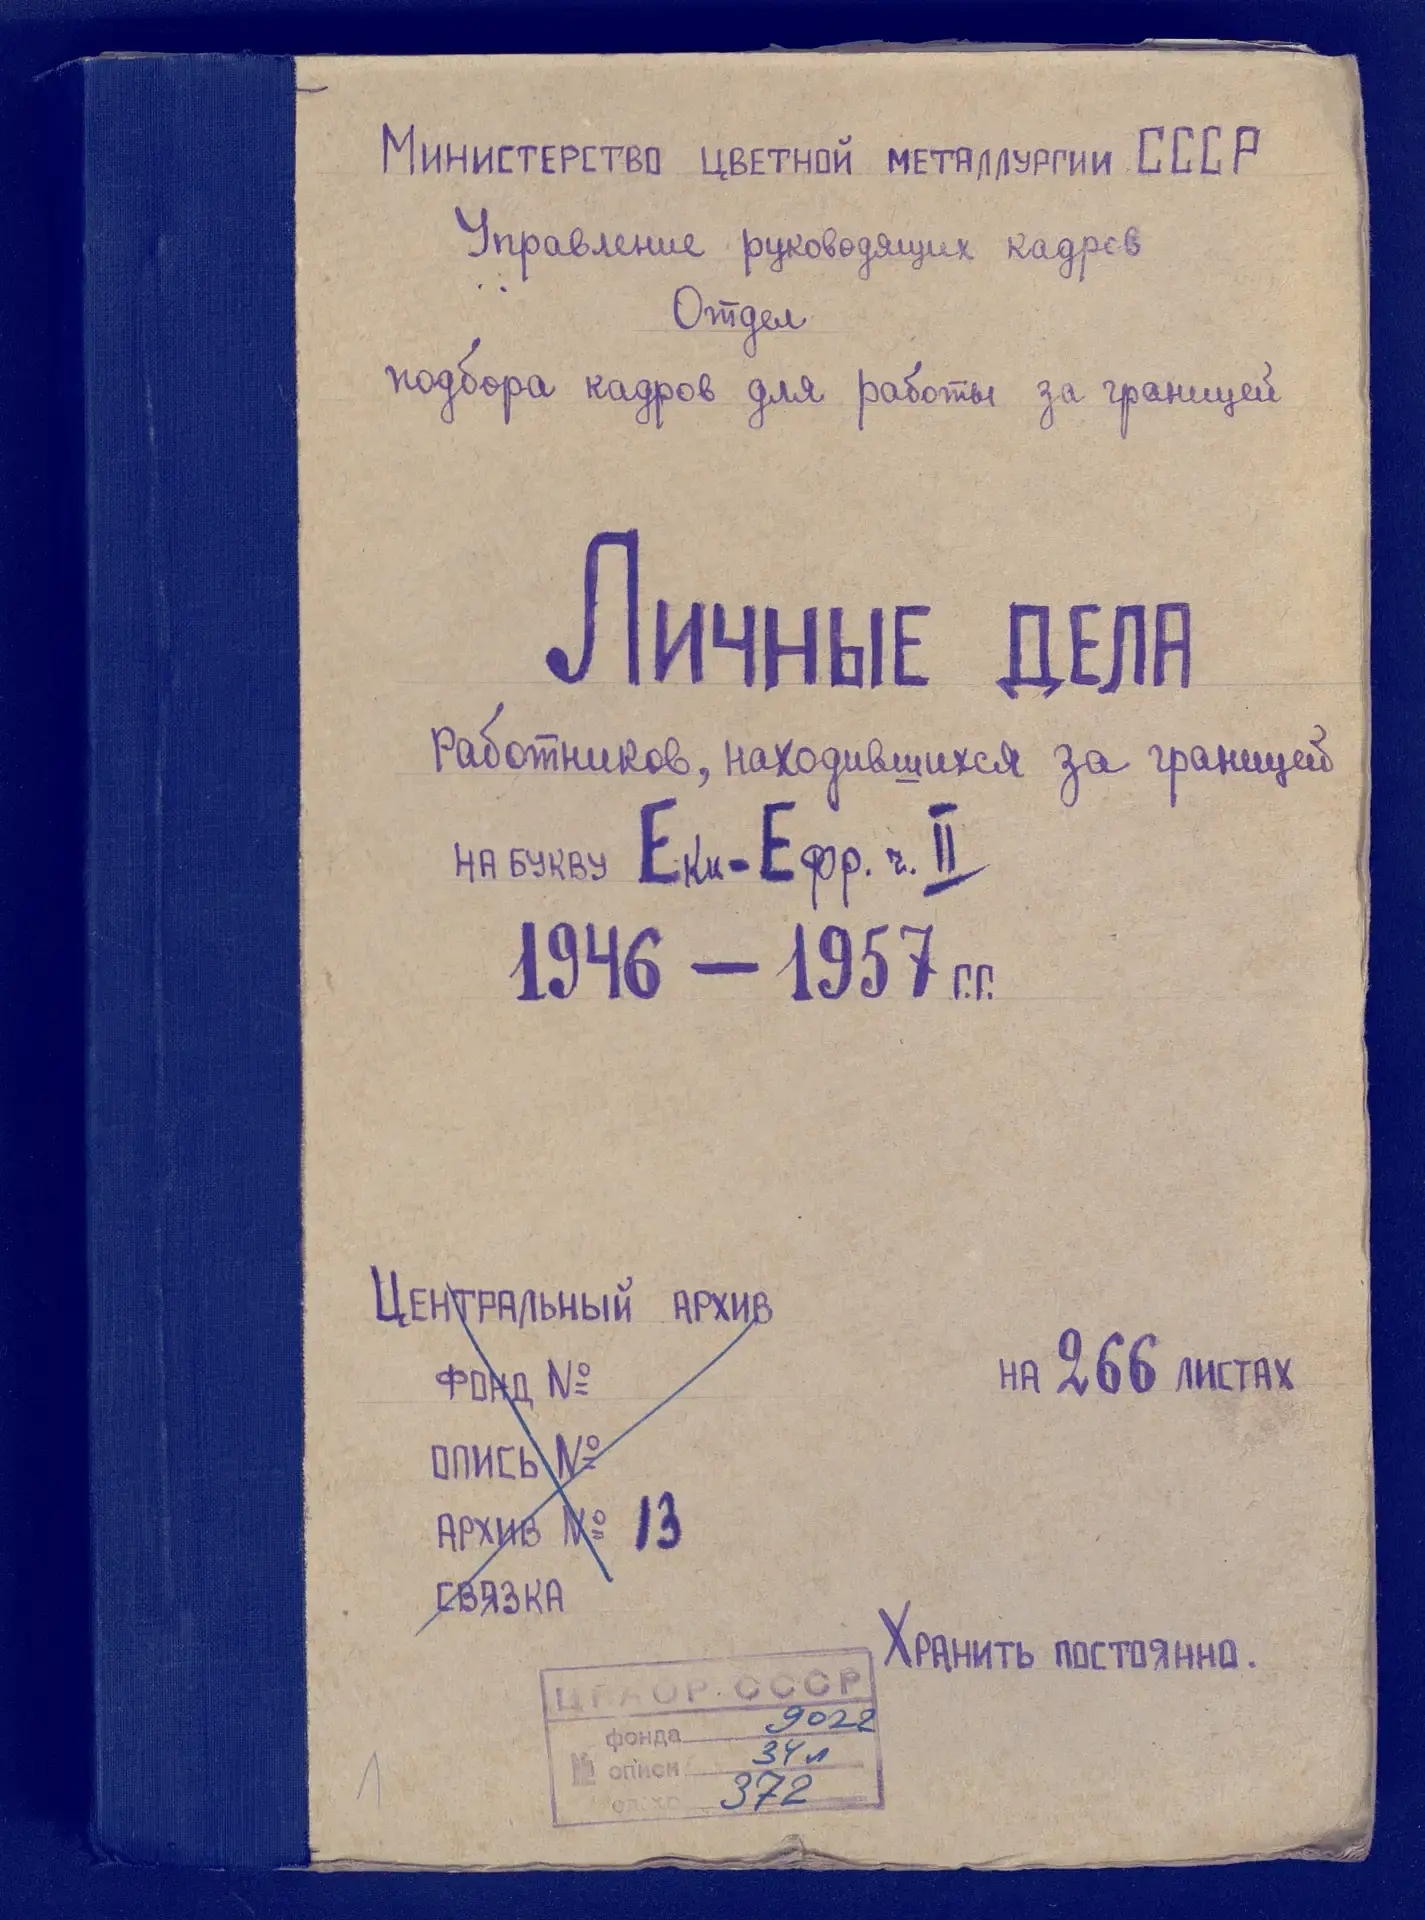 Министерство цветной металлургии СССР
Управление руководящих кадров
Отдел
подбора кадров для работы за границей
Личные дела
работников, находившихся за границей
на букву Еки-Ефр. ч. II
1946 — 1957 г.г.
Центральный архив
фонд №
опись №
архив № 13
связка
на 266 листах
Хранить постоянно.
ЦГАОР СССР
фонда 9022
№ описи 34л
ед. хр. 372
1